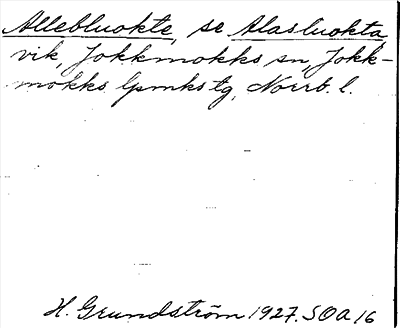 Allebluokte, se Alasluokta
vik, Jokkmokks sn, Jokk-
mokks lpmkstg, Norrb. l.
H. Grundström 1927. SOA 16